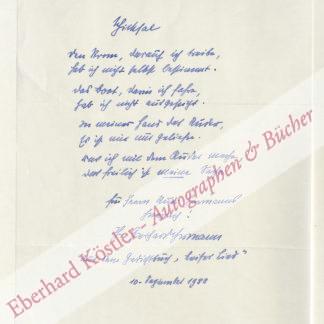 Schicksal
Den Strom, darauf ich treibe,
hab ich nicht selbst bestimmt.
Das Boot, darin ich fahre,
hab ich nicht ausgesucht.
In meiner Hand das Ruder,
Es ist mir nur geliehn.
Was ich mit dem Ruder mache
das freilich ist meine Sache
Für Herrn
herzlich!
Aus dem Gedichtbuch,
10. Dezember 1982
Eberhard Köstler - Autographen & Bücher